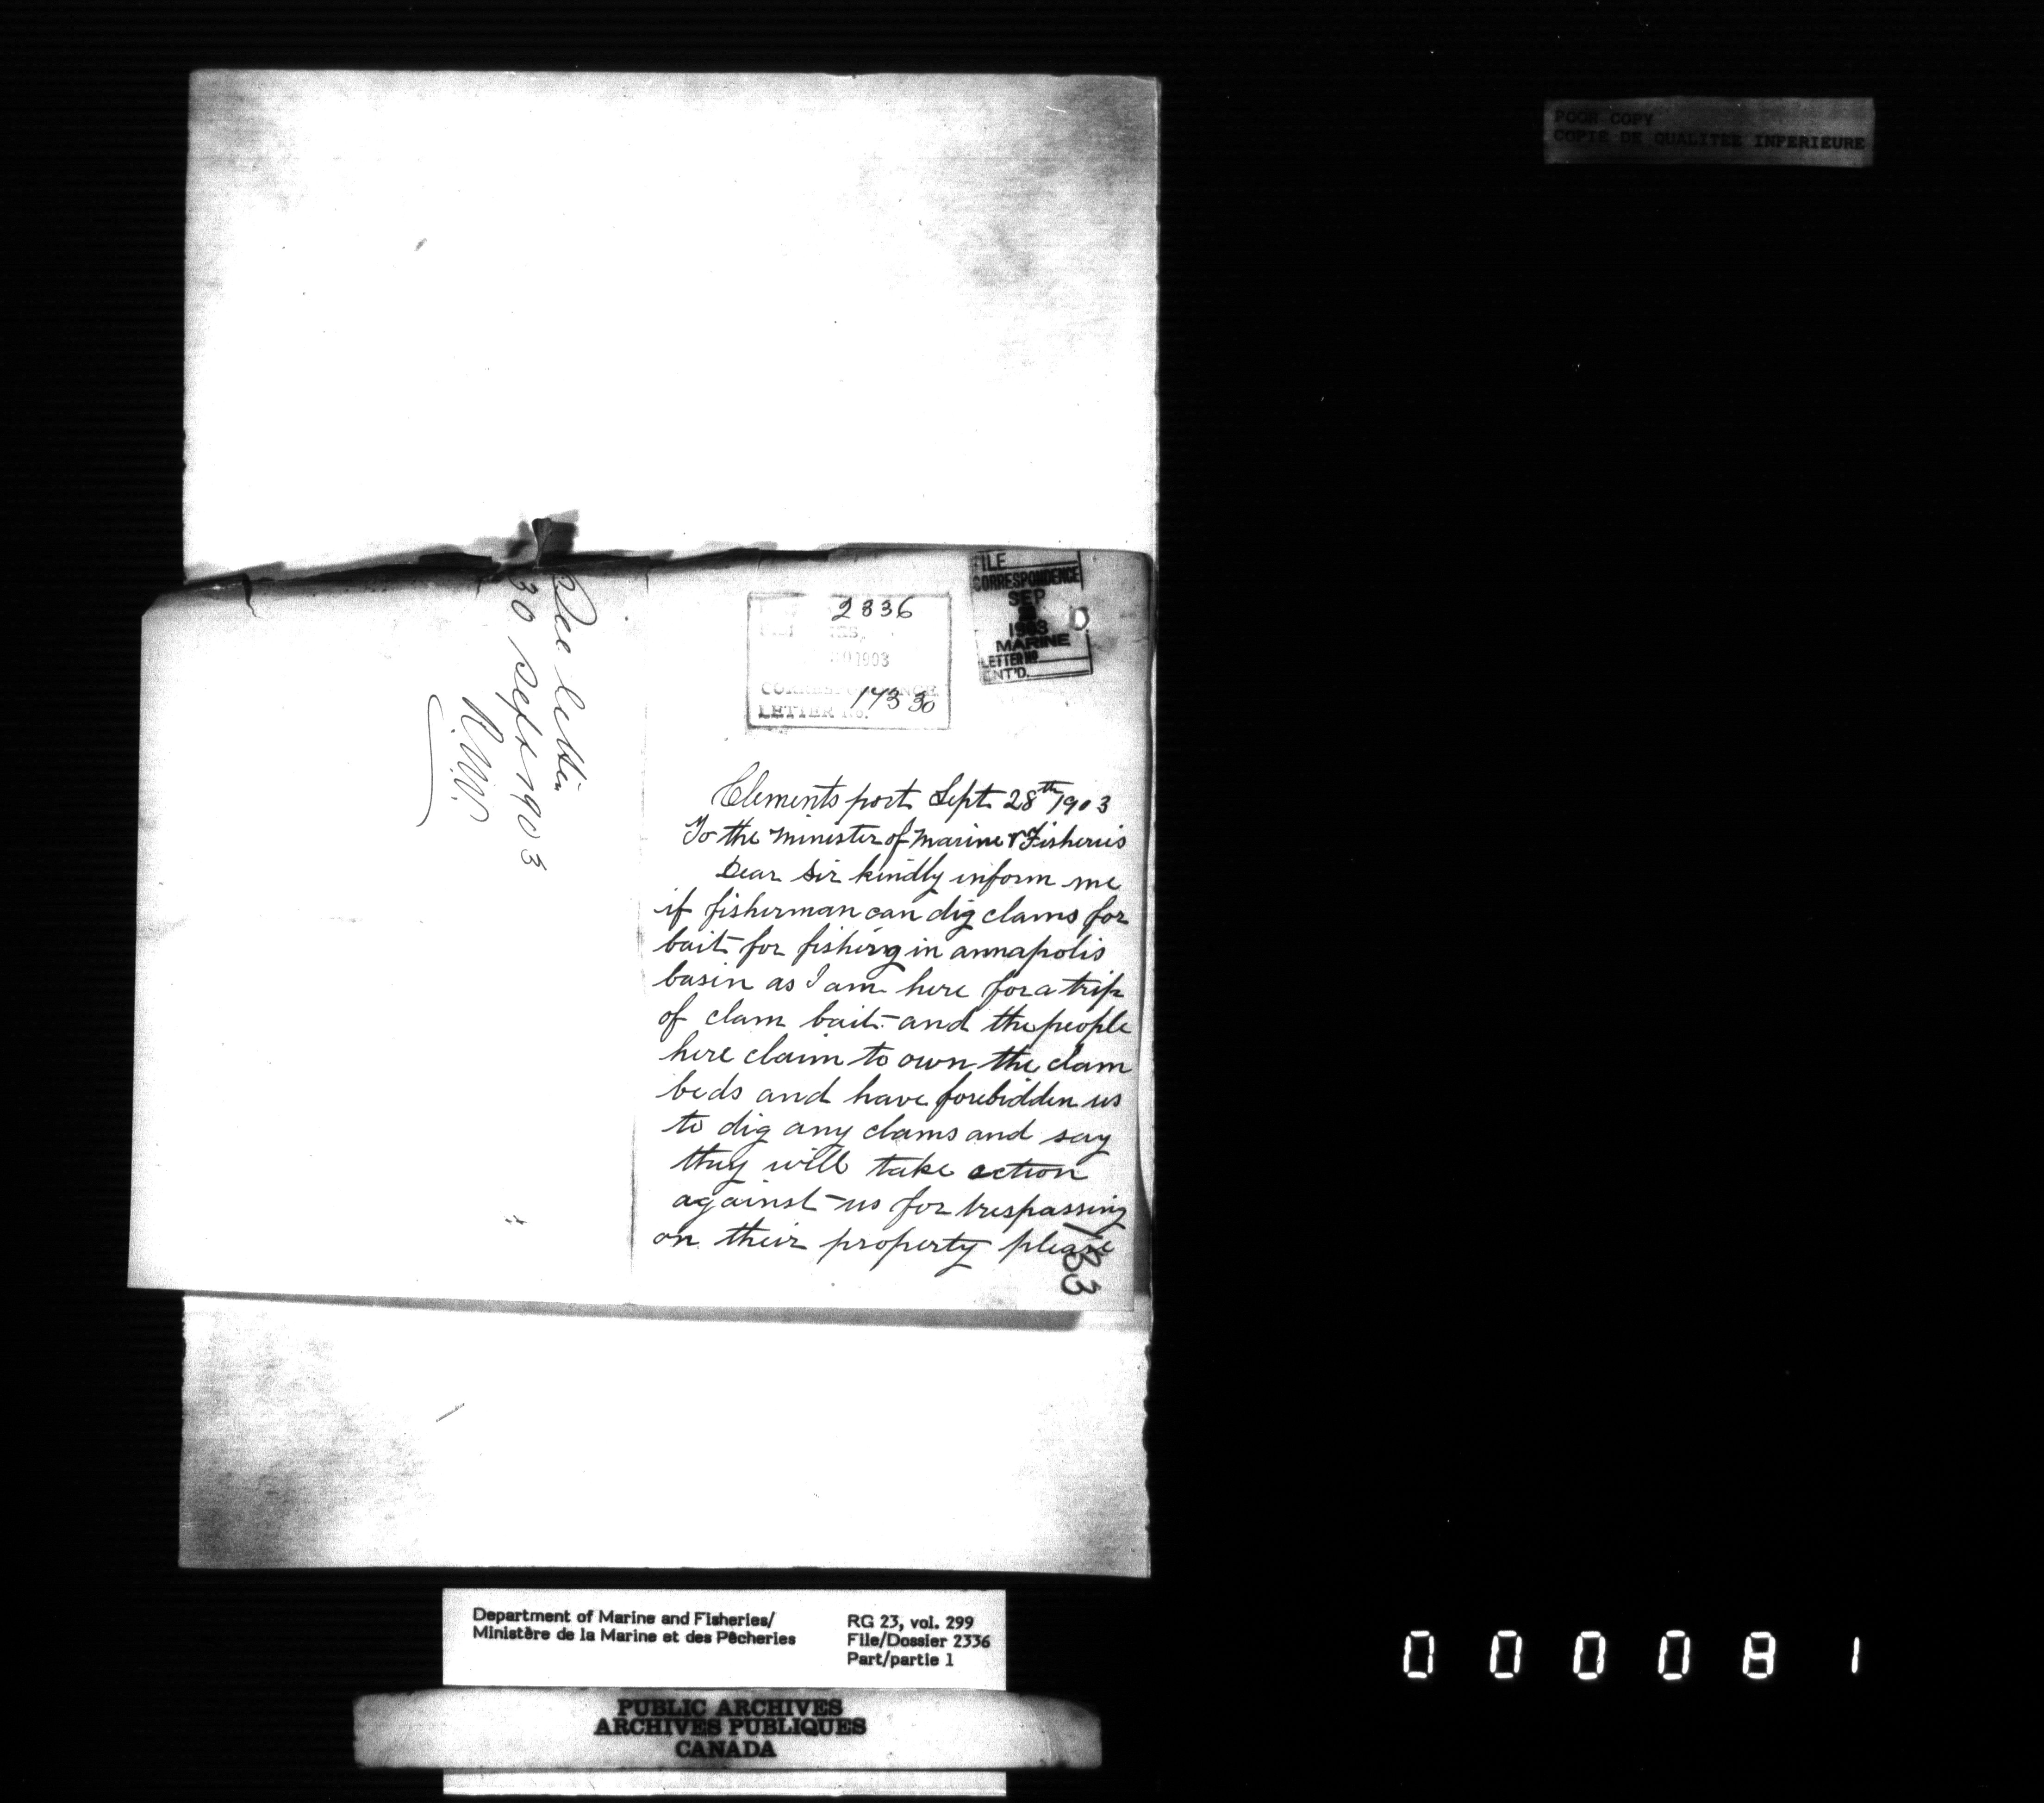 POOR COPY
COPIE DE QUALITEE INFERIEURE
FILE
CORRESPONDENCE
SEP
1903
MARINE
LETTER NO
ENT'D.
2336
1903
CORRESPONDENCE
14330
LETTER No.
See letter
30 Sept 1903
Clementsport Sept 28th 1903
To the minister of marine & Fisheries
Dear Sir kindly inform me
if fisherman can dig clams for
bait for fishing in annapolis
basin as I am here for a trip
of clam bait and the people
here claim to own the clam
beds and have forebidden us
to dig any clams and say
they will take action
against us for trespassing
on their property please
133
Department of Marine and Fisheries/
Ministère de la Marine et des Pêcheries
RG 23, vol. 299
File/Dossier 2336
Part/partie 1
PUBLIC ARCHIVES
ARCHIVES PUBLIQUES
CANADA
000081